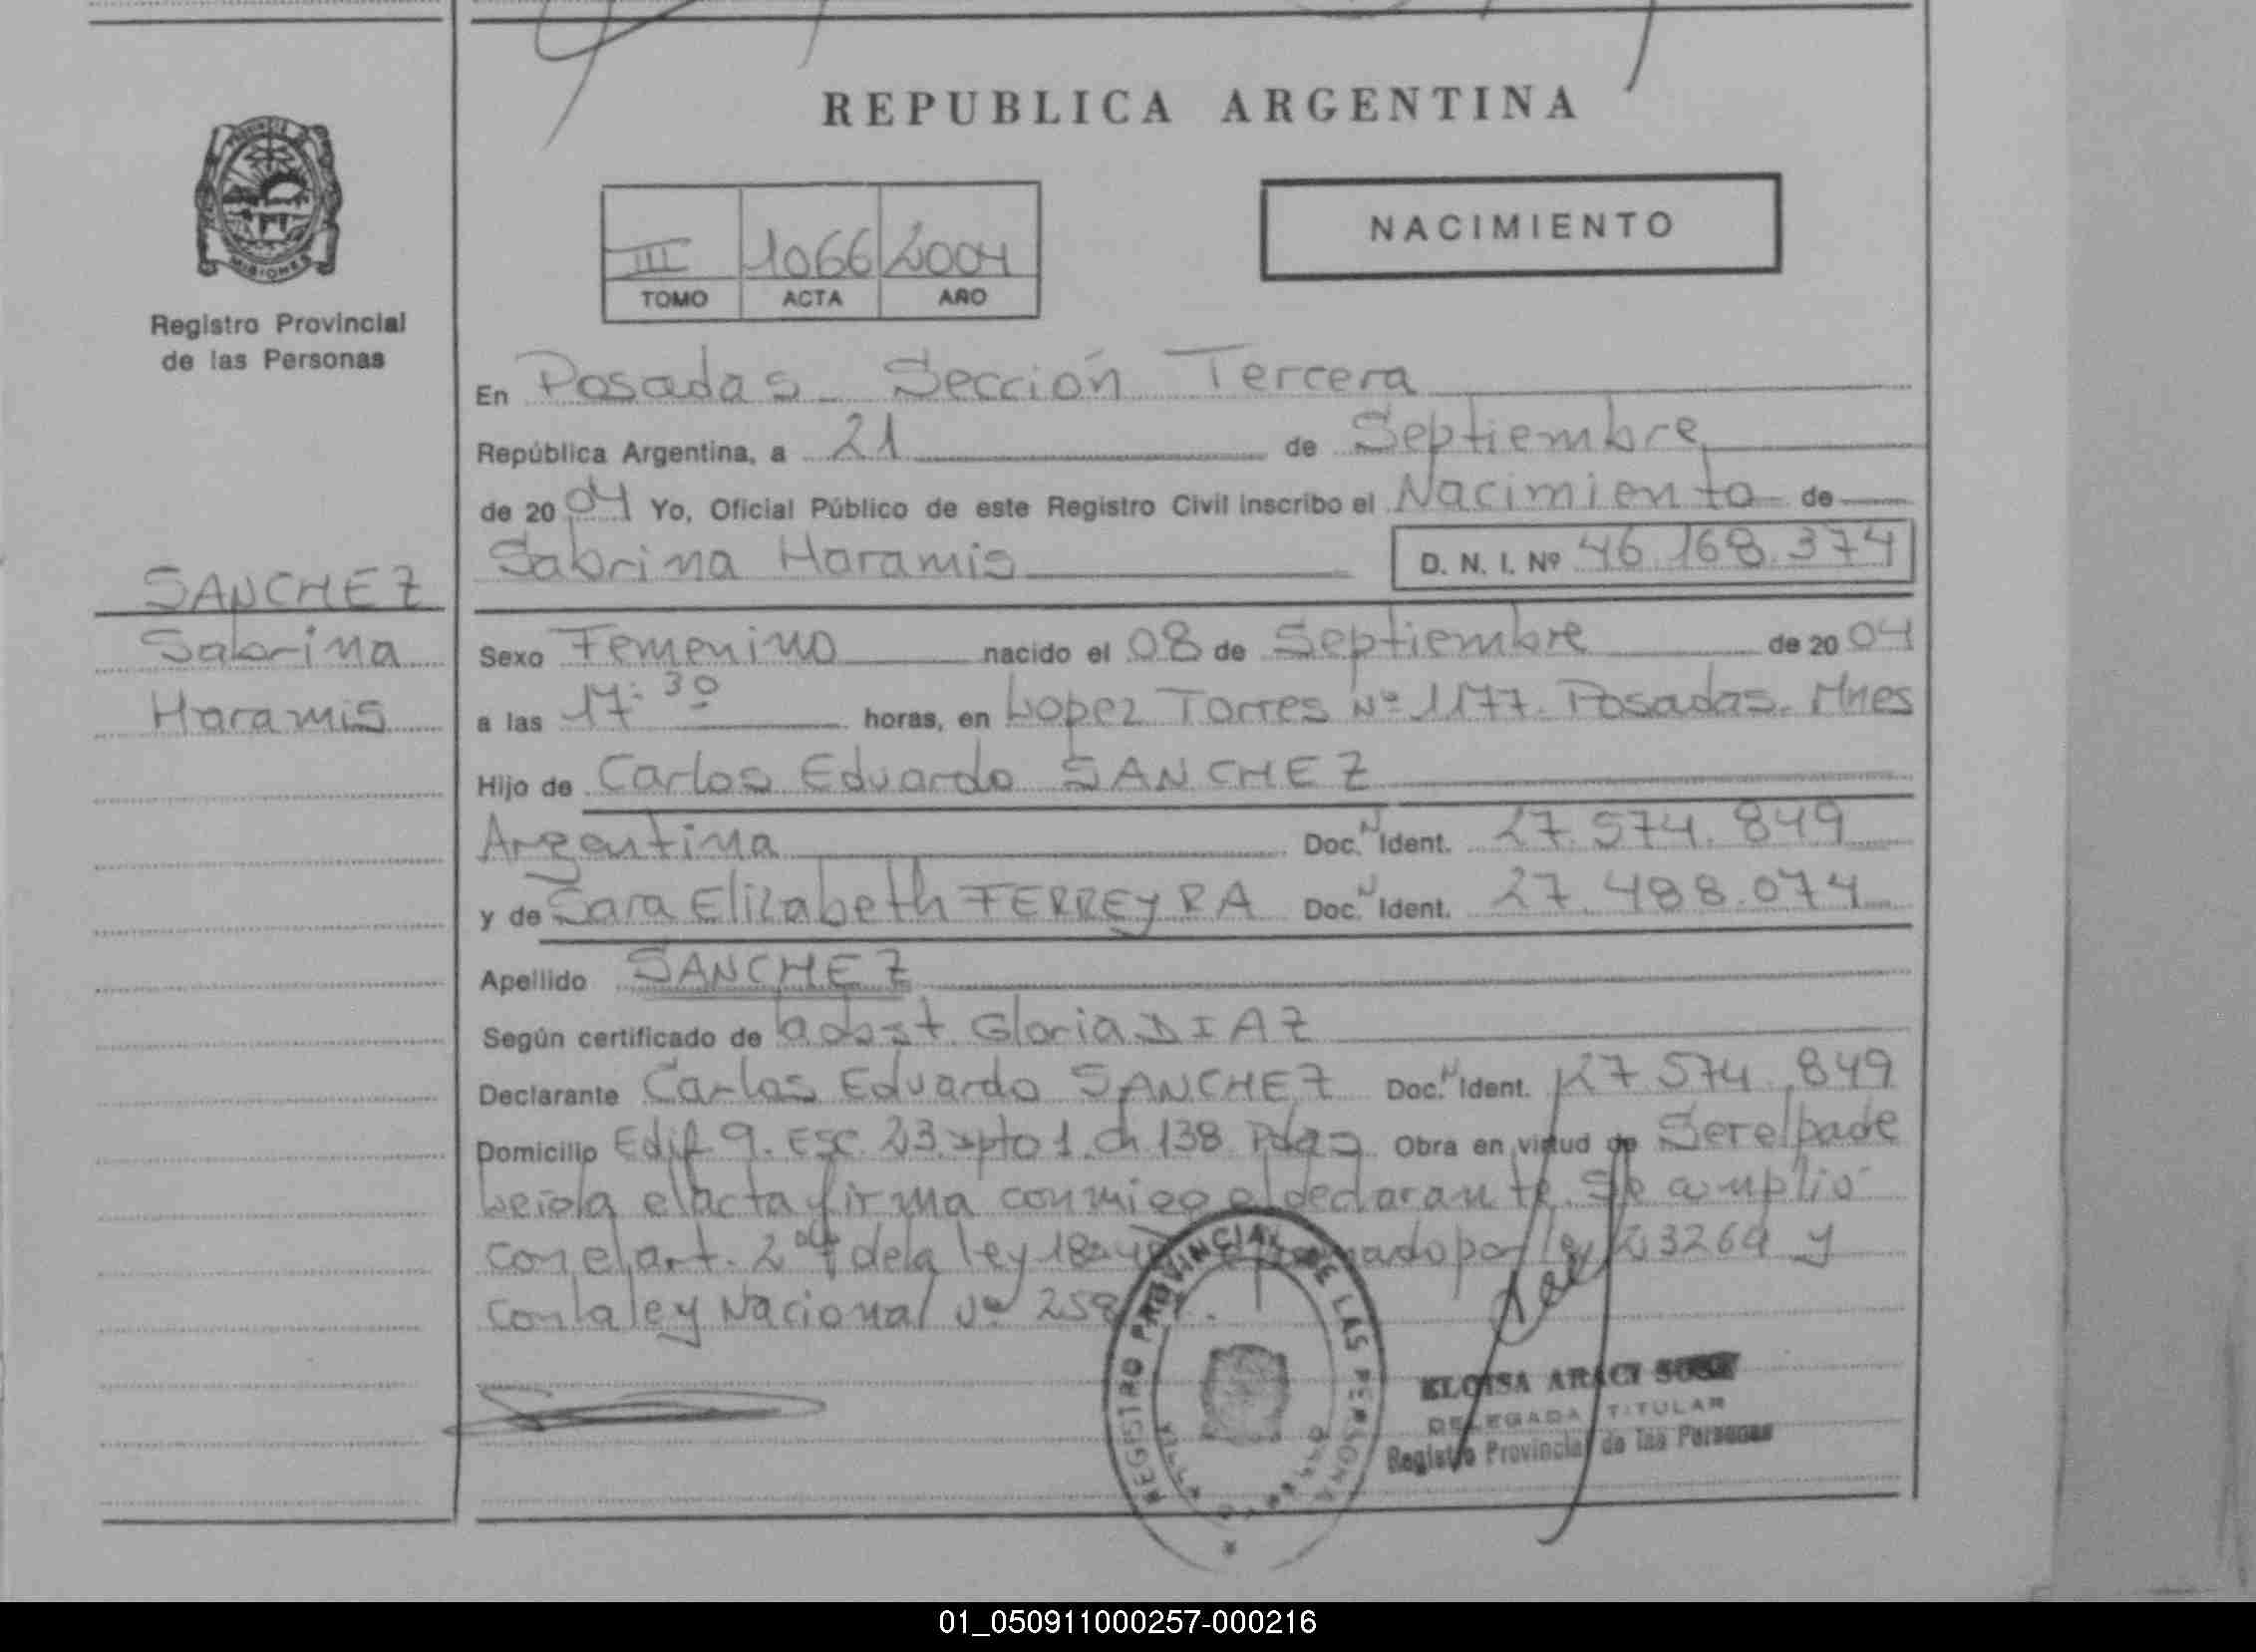 REPUBLICA ARGENTINA
PROVINCIA DE MISIONES
III 1066 2004
TOMO ACTA AÑO
NACIMIENTO
Registro Provincial
de las Personas
En Posadas - Sección Tercera
República Argentina, a 21 de Septiembre
de 2004 Yo, Oficial Público de este Registro Civil inscribo el Nacimiento de
Sabrina Haramis D. N. I. Nº 46.168.374
SANCHEZ
Sabrina
Haramis
Sexo Femenino nacido el 08 de Septiembre de 2004
a las 17:30 horas, en Lopez Torres Nº 1177. Posadas. Mnes
Hijo de Carlos Eduardo SANCHEZ
Argentina Doc. N Ident. 27.574.849
y de Sara Elizabeth FERREYRA Doc. N Ident. 27.488.074
Apellido SANCHEZ
Según certificado de obst. Gloria DIAZ
Declarante Carlos Eduardo SANCHEZ Doc. N Ident. 27 574.849
Domicilio Edif 9. Esc. 23. dpto 1. ch. 138. Pdas. Obra en virtud de Serelpade
Leida el acta firma conmigo el declarante. Se cumplió
con el art. 2 de la ley por ley 23264 y
con la ley Nacional Nº
REGISTRO PROVINCIAL DE LAS PERSONAS
ELOISA ARACI
DELEGADA TITULAR
Registro Provincial de las Personas
01_050911000257-000216